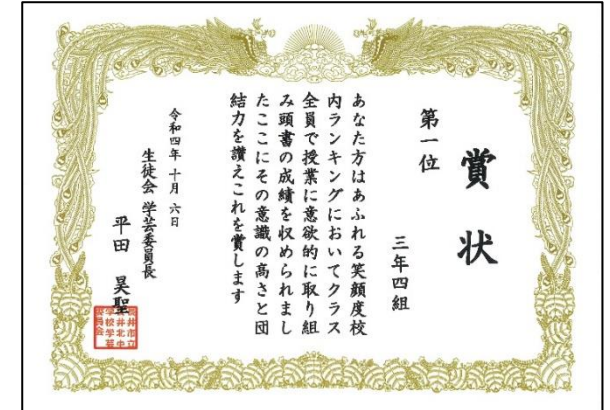 賞状
第一位
三年四組
あなた方はあふれる笑顔度校
内ランキングにおいてクラス
全員で授業に意欲的に取り組
み頭書の成績を収められまし
たここにその意識の高さと団
結力を讃えこれを賞します
令和四年 十月 六日
生徒会 学芸委員長
平田 昊聖